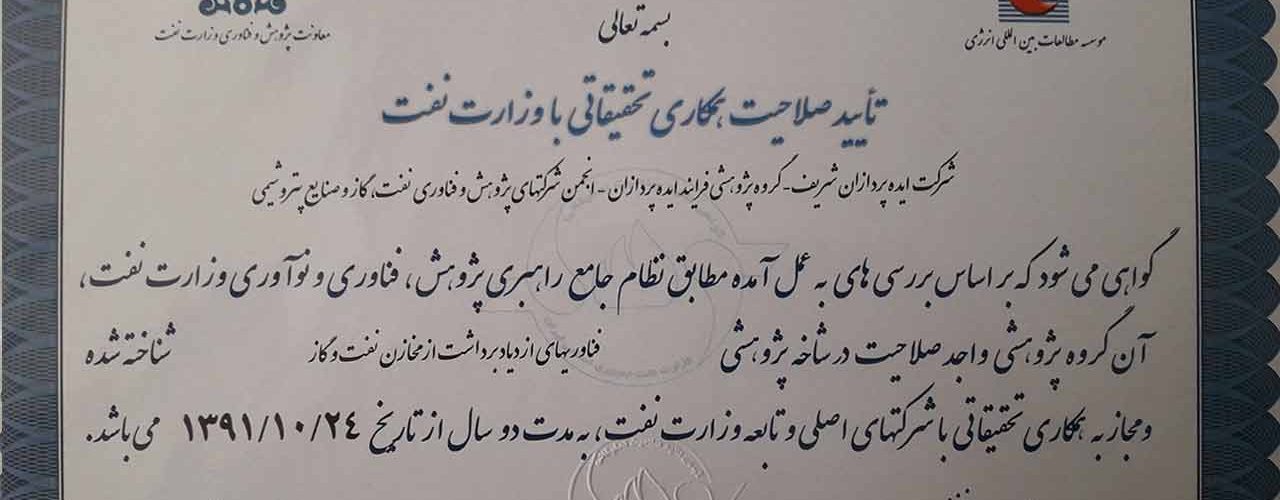 موسسه مطالعات بین المللی انرژی
بسمه تعالی
معاونت پژوهش و فناوری وزارت نفت
تأیید صلاحیت همکاری تحقیقاتی با وزارت نفت
شرکت ایده پردازان شریف-گروه پژوهشی فرایند ایده پردازان -انجمن شرکتهای پژوهش و فناوری نفت، گاز و صنایع پتروشیمی
گواهی می شود که بر اساس بررسی های به عمل آمده مطابق نظام جامع راهبری پژوهش، فناوری و نوآوری وزارت نفت،
آن گروه پژوهشی واجد صلاحیت در شاخه پژوهشی فناوریهای ازدیاد برداشت از مخازن نفت و گاز شناخته شده
و مجاز به همکاری تحقیقاتی با شرکتهای اصلی و تابعه وزارت نفت، به مدت دو سال از تاریخ ۱۳۹۱/۱۰/۲۴ می باشد.